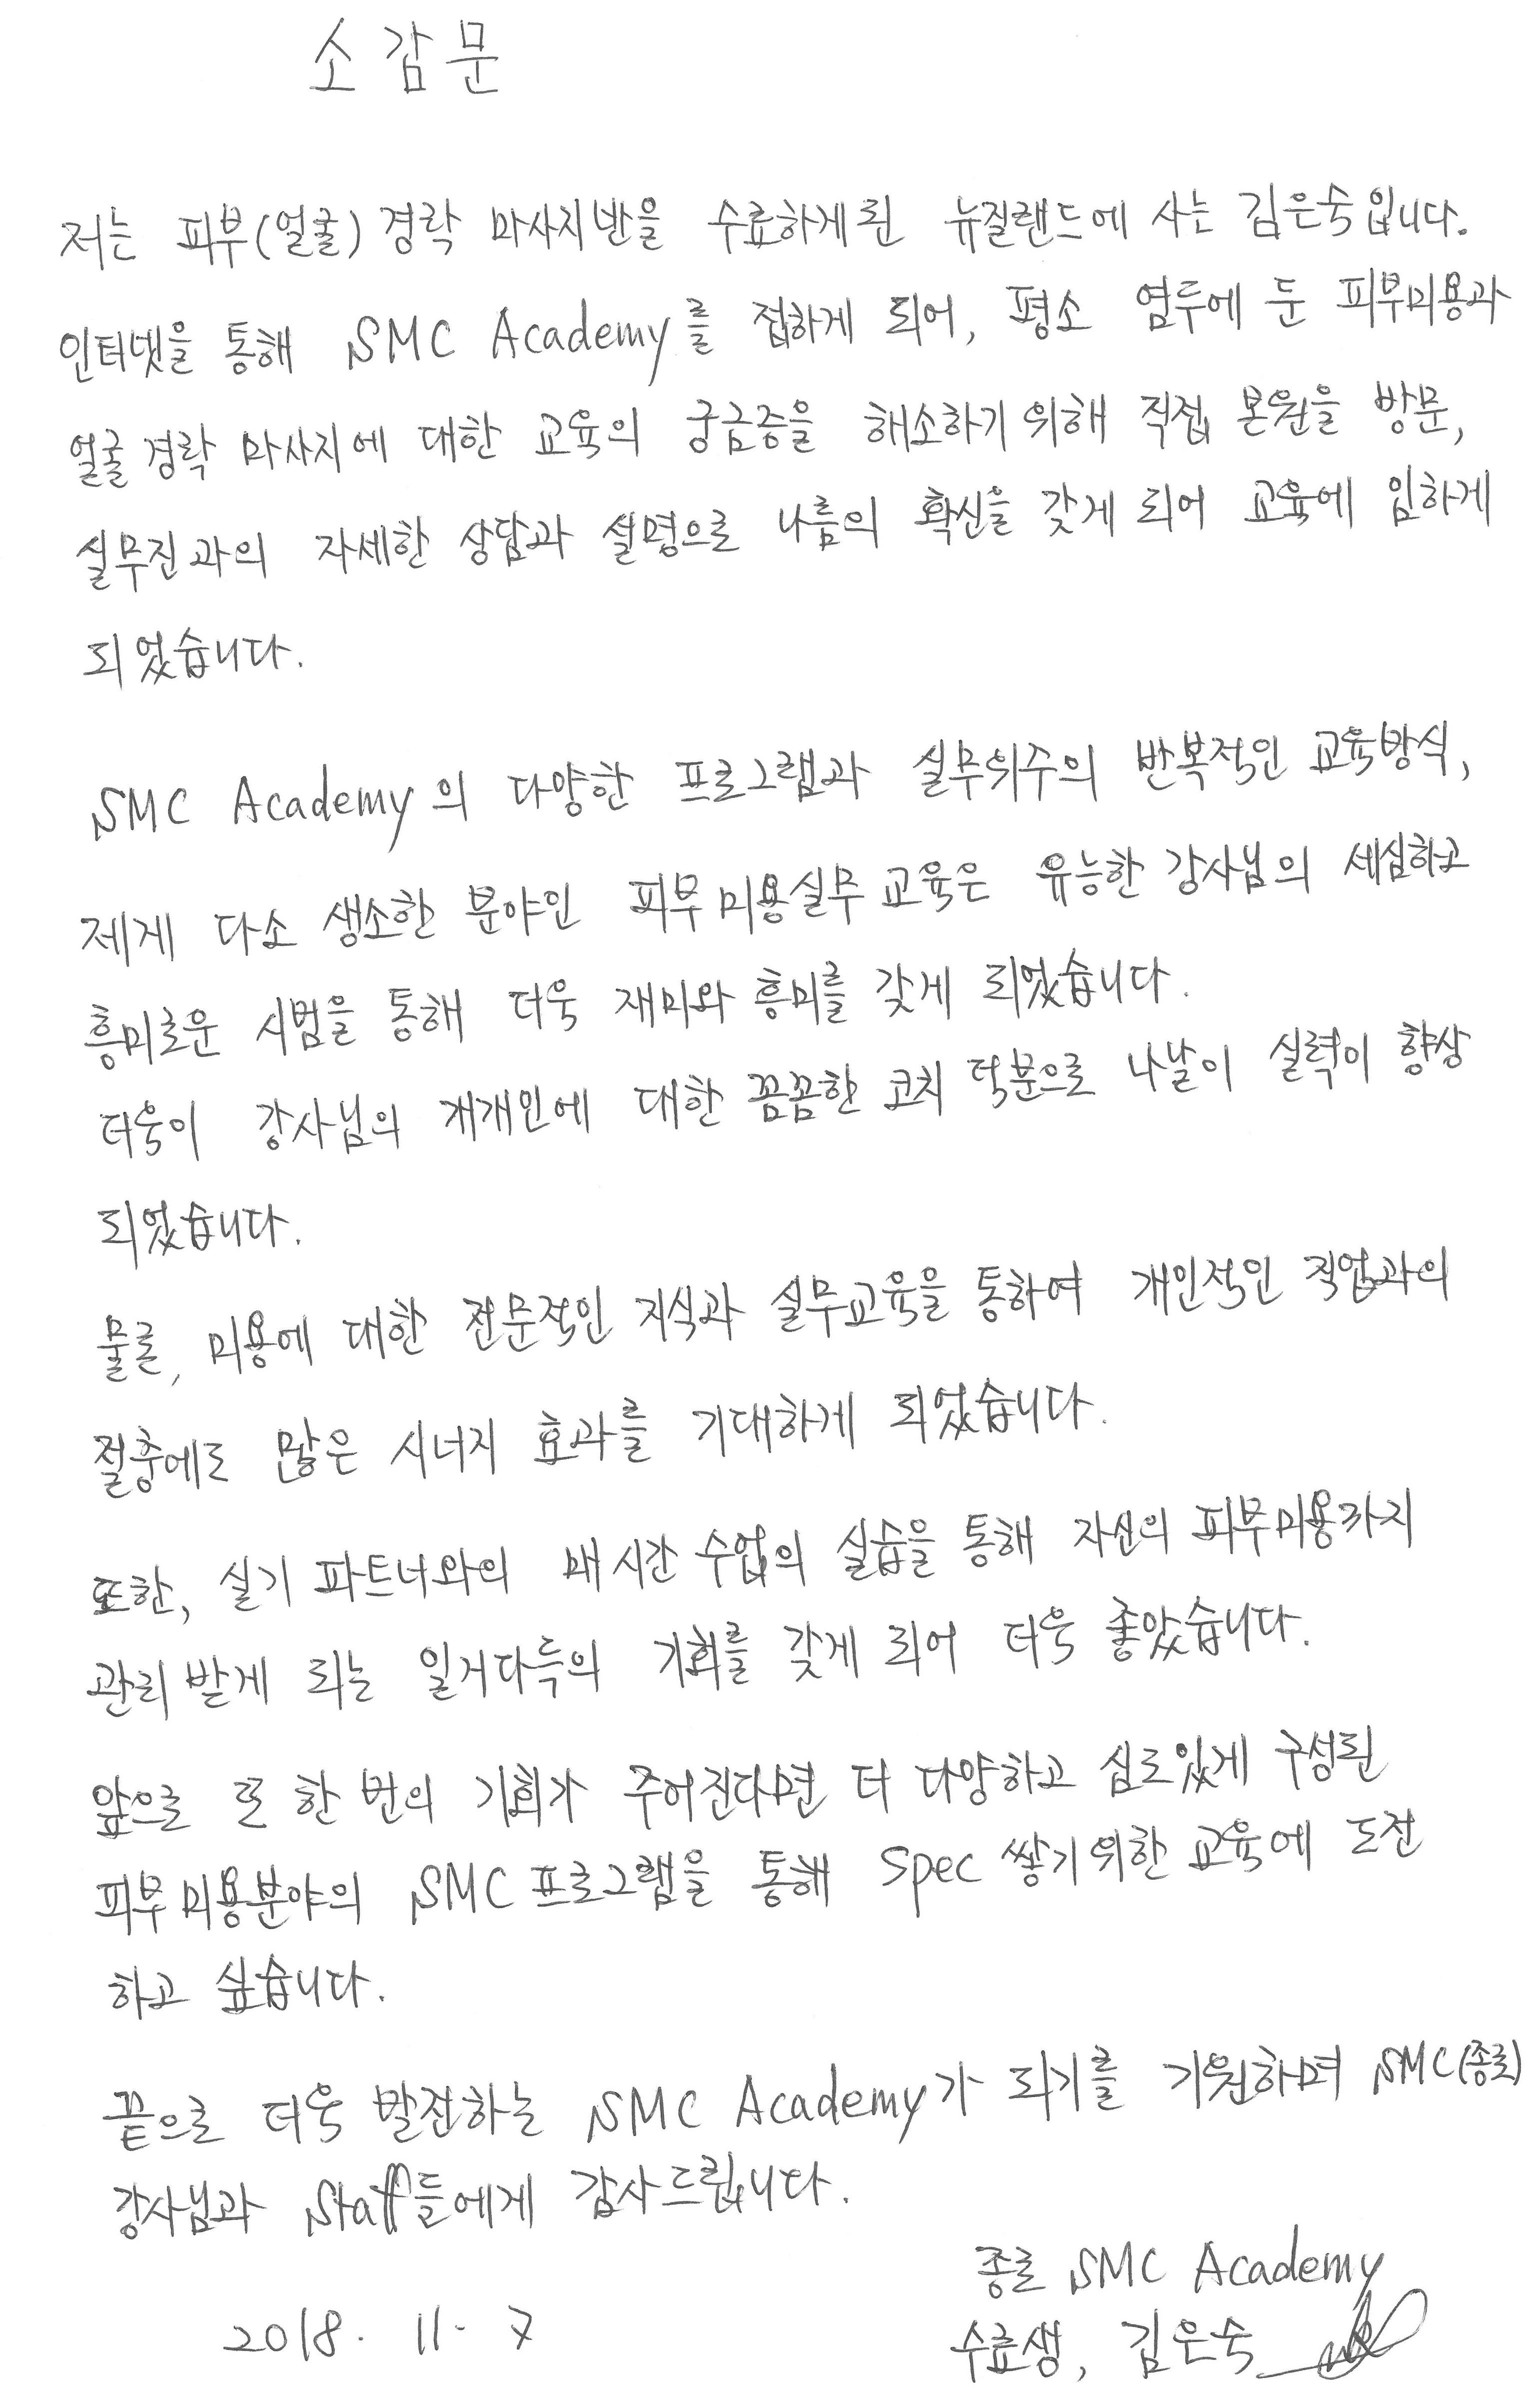 소감문
저는 피부(얼굴) 경락 마사지반을 수료하게된 뉴질랜드에 사는 김은숙입니다.
인터넷을 통해 SMC Academy를 접하게 되어, 평소 염두에 둔 피부미용과
얼굴경락 마사지에 대한 교육의 궁금증을 해소하기위해 직접 본원을 방문,
실무진과의 자세한 상담과 설명으로 나름의 확신을 갖게 되어 교육에 임하게
되었습니다.
SMC Academy의 다양한 프로그램과 실무위주의 반복적인 교육방식,
제게 다소 생소한 분야인 피부미용실무교육은 유능한 강사님의 세심하고
흥미로운 시범을 통해 더욱 재미와 흥미를 갖게 되었습니다.
더욱이 강사님의 개개인에 대한 꼼꼼한 코치 덕분으로 나날이 실력이 향상
되었습니다.
물론, 미용에 대한 전문적인 지식과 실무교육을 통하여 개인적인 직업과의
절충에도 많은 시너지 효과를 기대하게 되었습니다.
또한, 실기 파트너와의 매시간 수업의 실습을 통해 자신의 피부미용까지
관리받게 되는 일거다득의 기회를 갖게 되어 더욱 좋았습니다.
앞으로 또 한 번의 기회가 주어진다면 더 다양하고 심도있게 구성된
피부미용분야의 SMC프로그램을 통해 spec 쌓기위한 교육에 도전
하고 싶습니다.
끝으로 더욱 발전하는 SMC Academy가 되기를 기원하며 SMC(종로)
강사님과 Staff들에게 감사드립니다.
종로 SMC Academy
2018. 11. 7 수료생, 김은숙